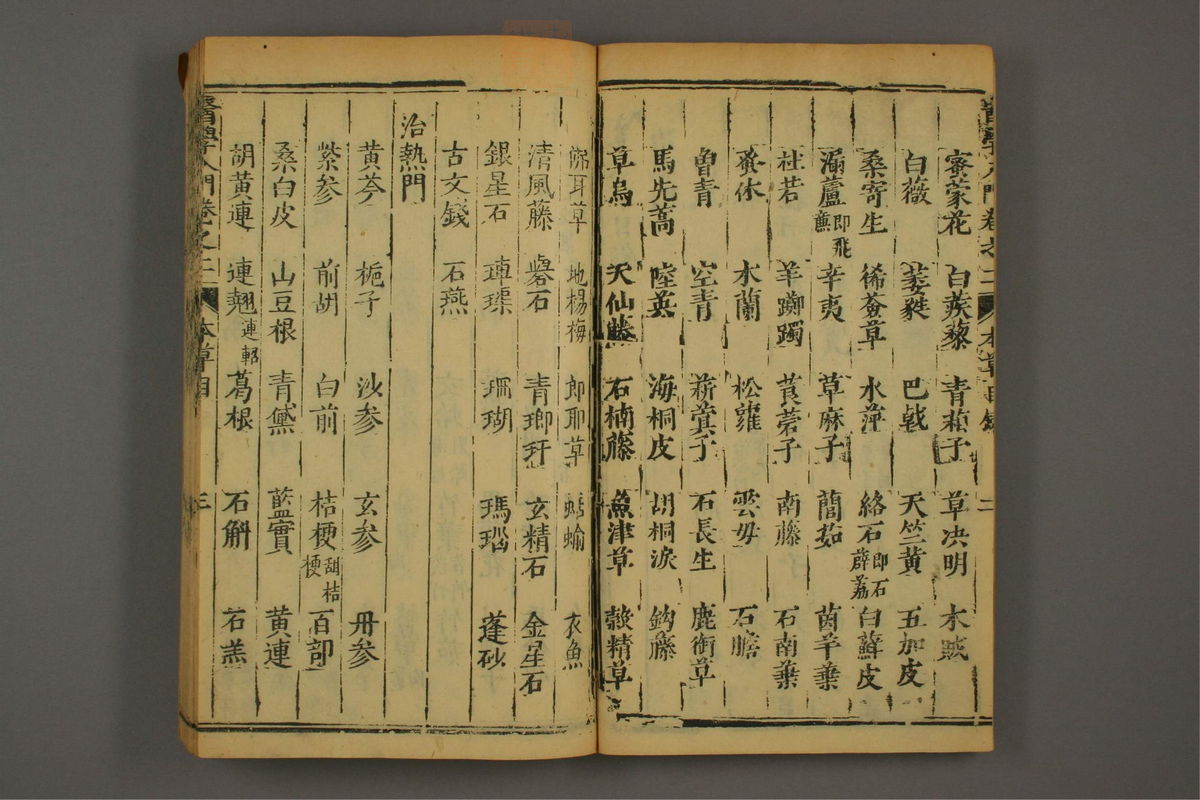 醫學入門卷之二 本草目錄 二
蜜蒙花 白蒺藜 青葙子 草決明 木賊
白薇 萎蕤 巴戟 天竺黃 五加皮
桑寄生 豨薟草 水萍 絡石即石薜荔 白蘚皮
漏蘆即飛蘆 辛夷 草麻子 蕳茹 茵芋葉
杜若 羊躑躅 莨菪子 南藤 石南葉
蚤休 木蘭 松蘿 雲母 石膽
曾青 空青 菥蓂子 石長生 鹿銜草
馬先蒿 陸英 海桐皮 胡桐淚 鈎藤
草烏 天仙藤 石楠藤 魚津草 穀精草
佛耳草 地楊梅 郎耶草 蛞蝓 衣魚
清風藤 礜石 青瑯玕 玄精石 金星石
銀星石 硨磲 珊瑚 瑪瑙 蓬砂
古文錢 石燕
治熱門
黃芩 梔子 沙參 玄參 丹參
紫參 前胡 白前 桔梗甜桔梗 百部
桑白皮 山豆根 青黛 藍實 黃連
胡黃連 連翹連軺 葛根 石斛 石羔
醫學入門卷之二 本草目 三